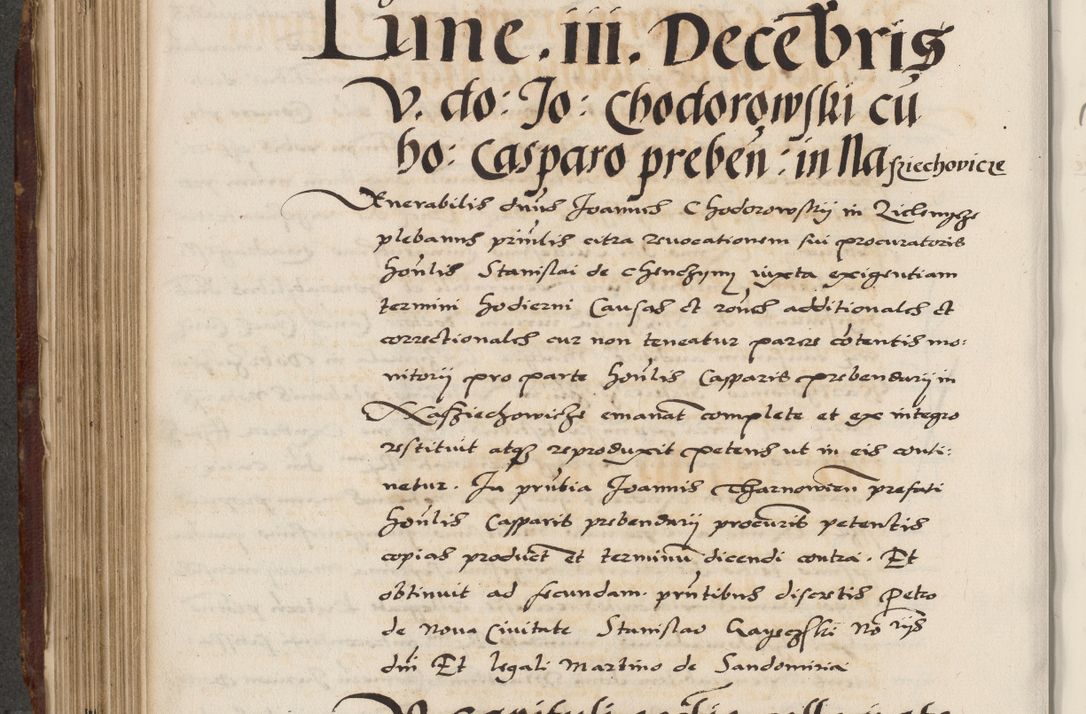 Lune . iii. Decēbris
V. do: Jo: Chodorowski cū
ho: Casparo preben̄: in Naſziechovicze
Venerabilis dnūs Joannes Chodorowſkÿ in Zielenÿcze
plebanus prin̄lis citra revocationem ſui procuratoris
hon̄lis Stanislai de Chenczynÿ iuxta exigentiam
termini hodierni Causas et rōnes additionales et
correctionales cur non teneatur parere cōtentis mo:
nitorÿ pro parte hon̄lis Casparis prebendarÿ in
Naſziechowicze emanat̄ complete et ex integro
reſtituit atq; reproduxit petens ut in eis conti:
netur. In prn̄tia Joannis Tharnowien̄ prefati
hon̄lis Casparis prebendarÿ procūris petentis
copias product̄ et terminū dicendi contra. Et
obtinuit ad ſecundam. prn̄tibus discretis Petro
de Nova Civitate Stanislao Gayeczſki Nōrÿs
dn̄i Et legali Martino de Sandomiria